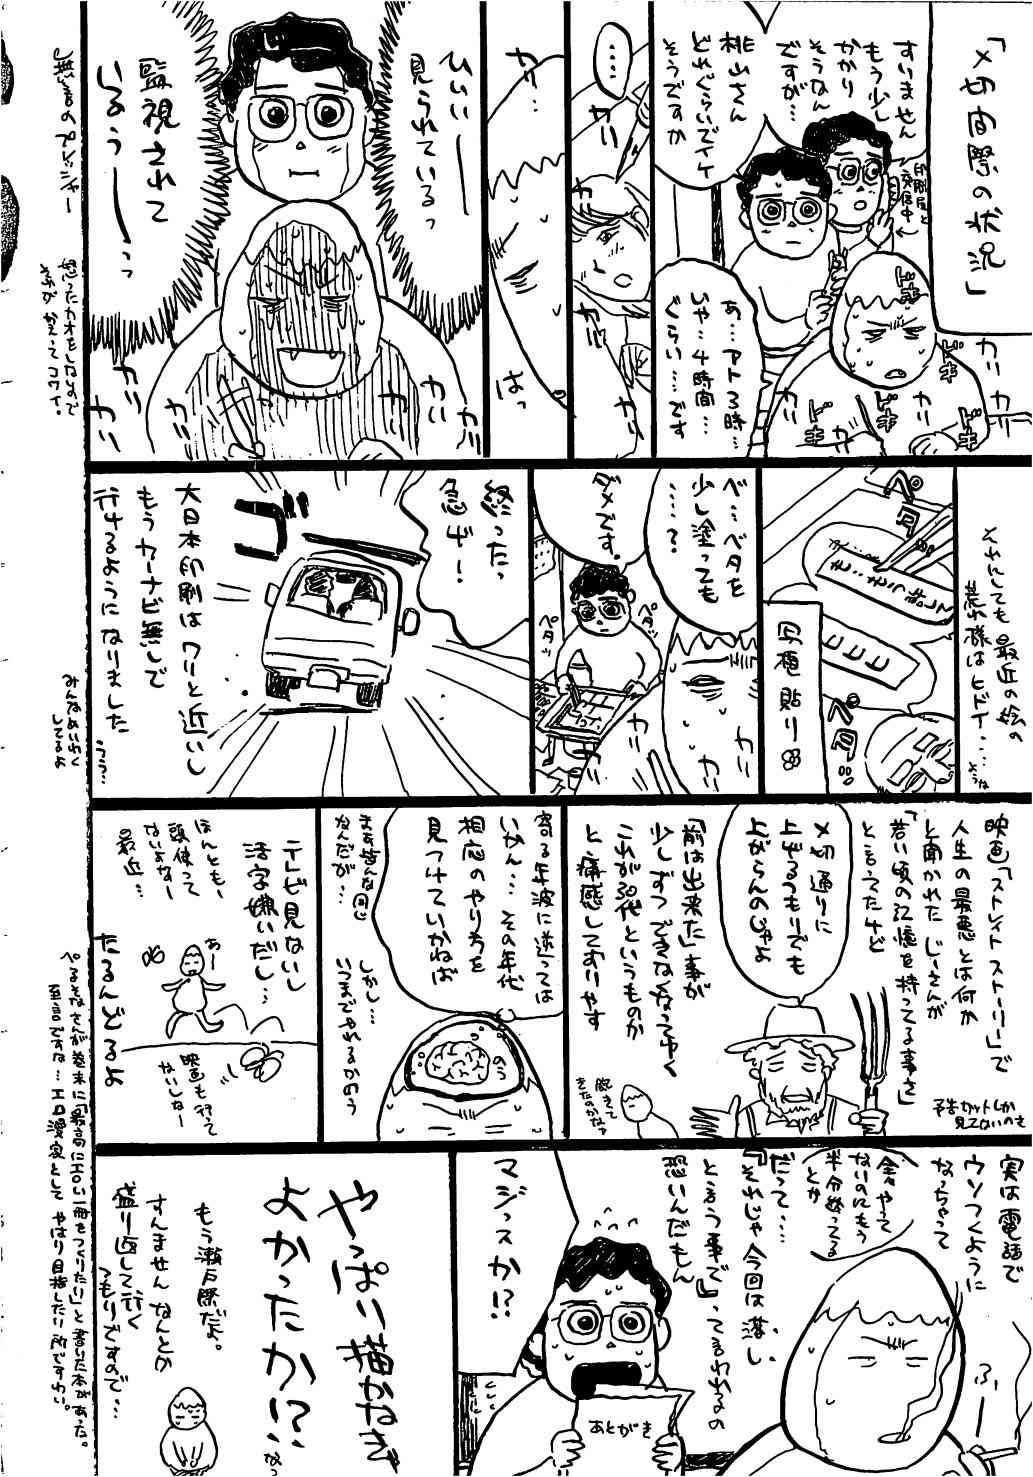 「〆切間際の状況」
すいません
もう少し
かかり
そうなん
ですが…
印刷屋と
交信中
桃山さん
どれぐらいでイケ
そうですか
あ…アト3時…
いや…4時間…
ぐらい……です
ドキ
ドキ
ドキ
ドキ
ドキ
カリ
カリ
カリ
‥‥
カリ
カリ
カリ
カリ…
はっ
ひいぃー
見られているっ
監視されて
いるぅーっっ
カリ
カリ
カリ
カリ
無言のプレッシャー
怒ったカオをしないので
それがかえってコワイ。
それにしても最近の絵の
荒れ様はヒドイ…
ような
ペタ
ペタ
写植貼り
ベ…ベタを
少し塗っても
……?
カリ
カリ
ダメです。
ペタッ
ペタッ
終ったっ
急げー!
ゴ
大日本印刷はワリと近いし
もうカーナビ無しで
行けるようになりました
うぅ…
みんなめいわく
してるよ
映画「ストレイトストーリー」で
人生の最悪とは何か
と聞かれたじーさんが
「若い頃の記憶を持ってる事さ」
と言ってたけど
予告カットしか
見てないのさ
〆切通りに
上げるつもりでも
上がらんのじゃよ
「前は出来た」事が
少しずつできなくなってゆく
これが30代というものか
と痛感しておりやす
飽きて
きたのかなァ
寄る年波に逆っては
いかん…その年代
相応のやり方を
見つけていかねば
のう
まぁ皆んな同じ
なんだが…
しかし…
いつまでやれるかのう
テレビ見ないし
活字嫌いだし…
ほんともー
頭使って
ないよなー
最近…
あー
映画も行って
ないしなー
たるんどるよ
実は電話で
ウソつくように
なっちゃって
全然やって
ないのにもう
半分終ってる
とか
だって…
『それじゃ今回は落し
という事で』って言われるの
恐いんだもん
ふぅー
マジっスか!?
あとがき
やっぱり描かなきゃ
よかったか!?
もう瀬戸際だよ。
すんません なんとか
盛り返して行く
つもりですので…
ぺるそなさんが巻末に「最高にエロい一冊をつくりたい」と書いた本があった。
至言ですな…エロ漫家として やはり目指したい所ですわい。